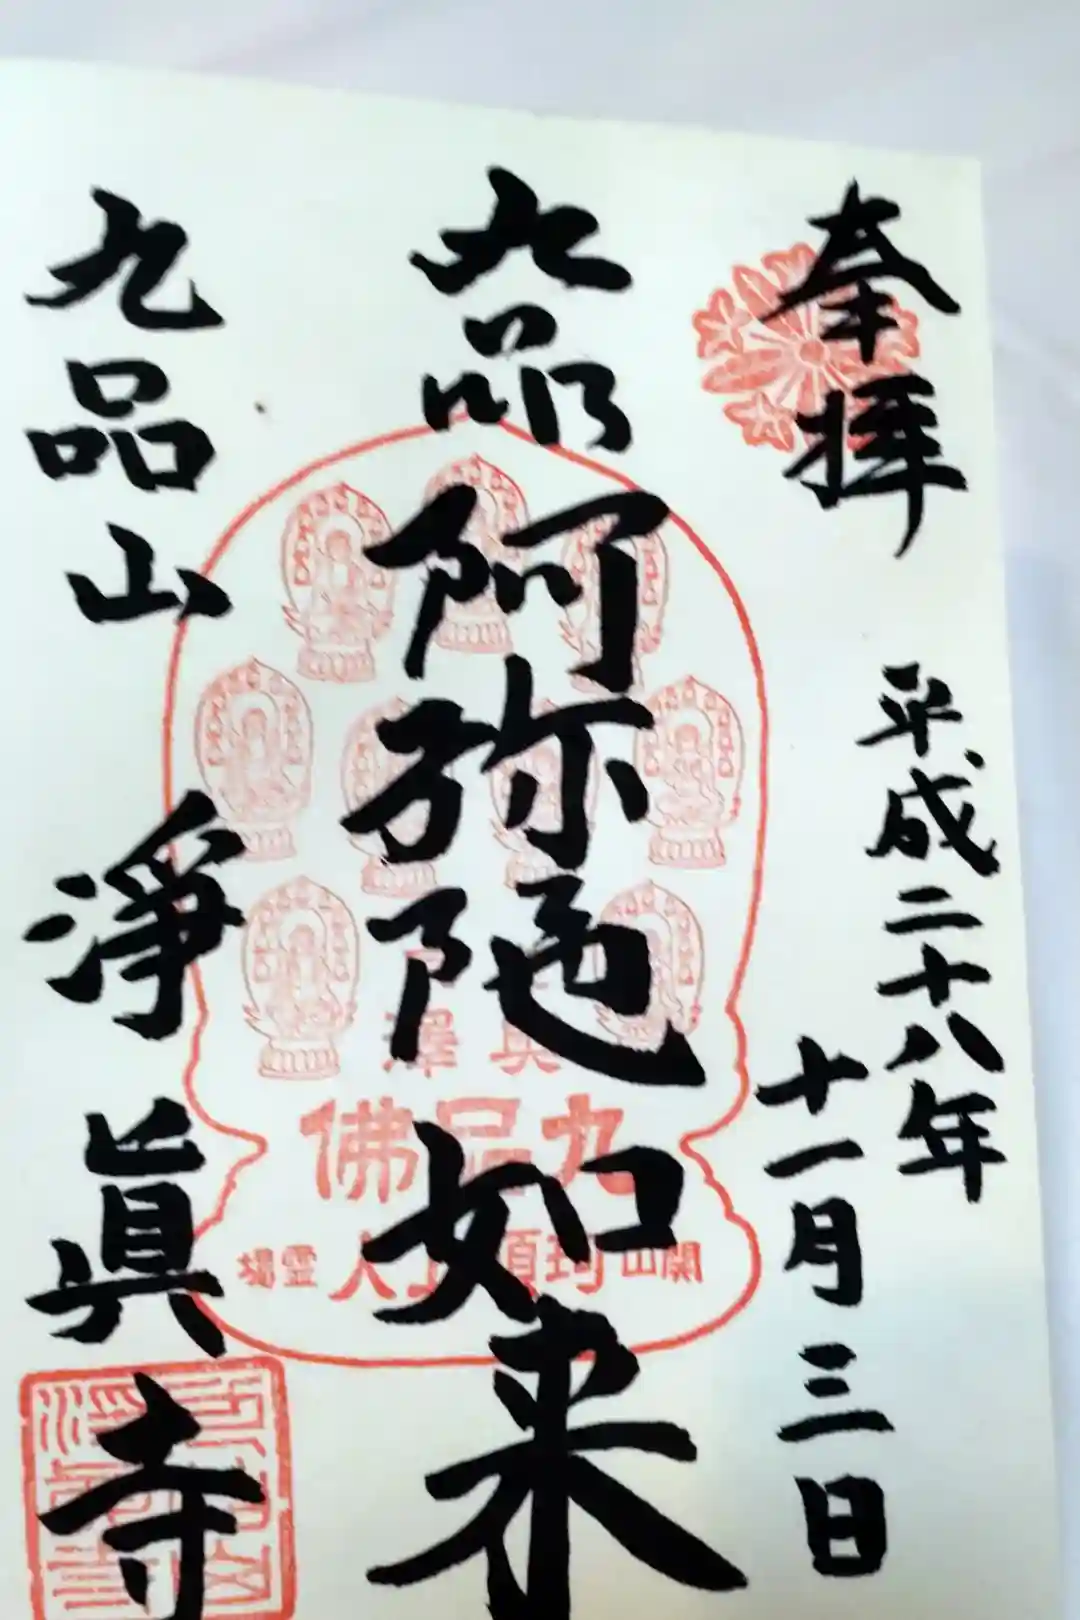 奉拝
平成二十八年
十一月三日
九品
阿弥陀如来
九品佛
開山珂碩上人霊場
九品山
淨眞寺